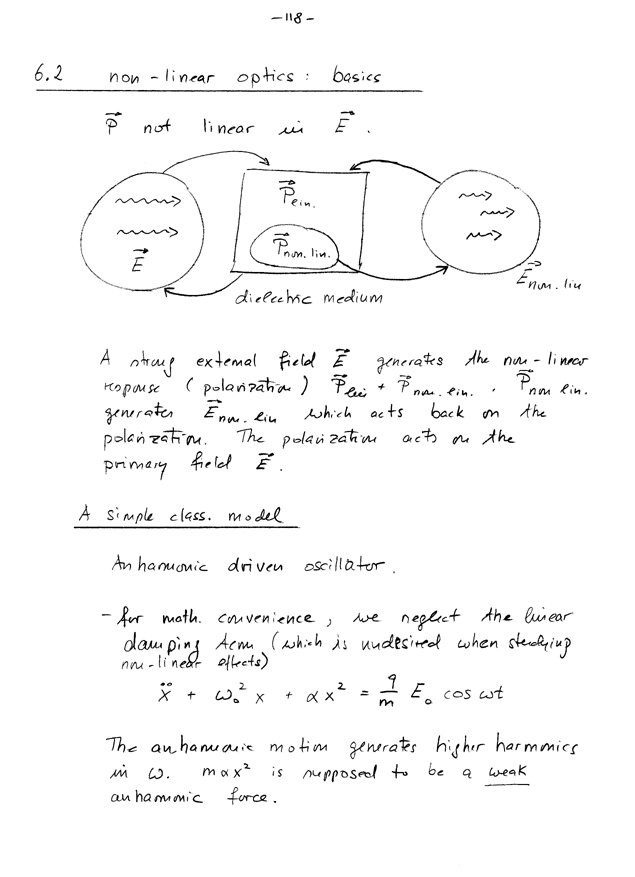 -118-
6.2 non-linear optics: basics
P⃗ not linear in E⃗.
P⃗ lin.
P⃗ non. lin.
E⃗
E⃗ non. lin
dielectric medium
A strong external field E⃗ generates the non-linear
response (polarization) P⃗ lin + P⃗ non. lin. . P⃗ non lin.
generates E⃗ non. lin which acts back on the
polarization. The polarization acts on the
primary field E⃗.
A simple class. model
Anharmonic driven oscillator.
- for math. convenience, we neglect the linear
damping term (which is undesired when studying
non-linear effects)
ẍ + ω₀² x + αx² = q/m E₀ cos ωt
The anharmonic motion generates higher harmonics
in ω. mαx² is supposed to be a weak
anharmonic force.